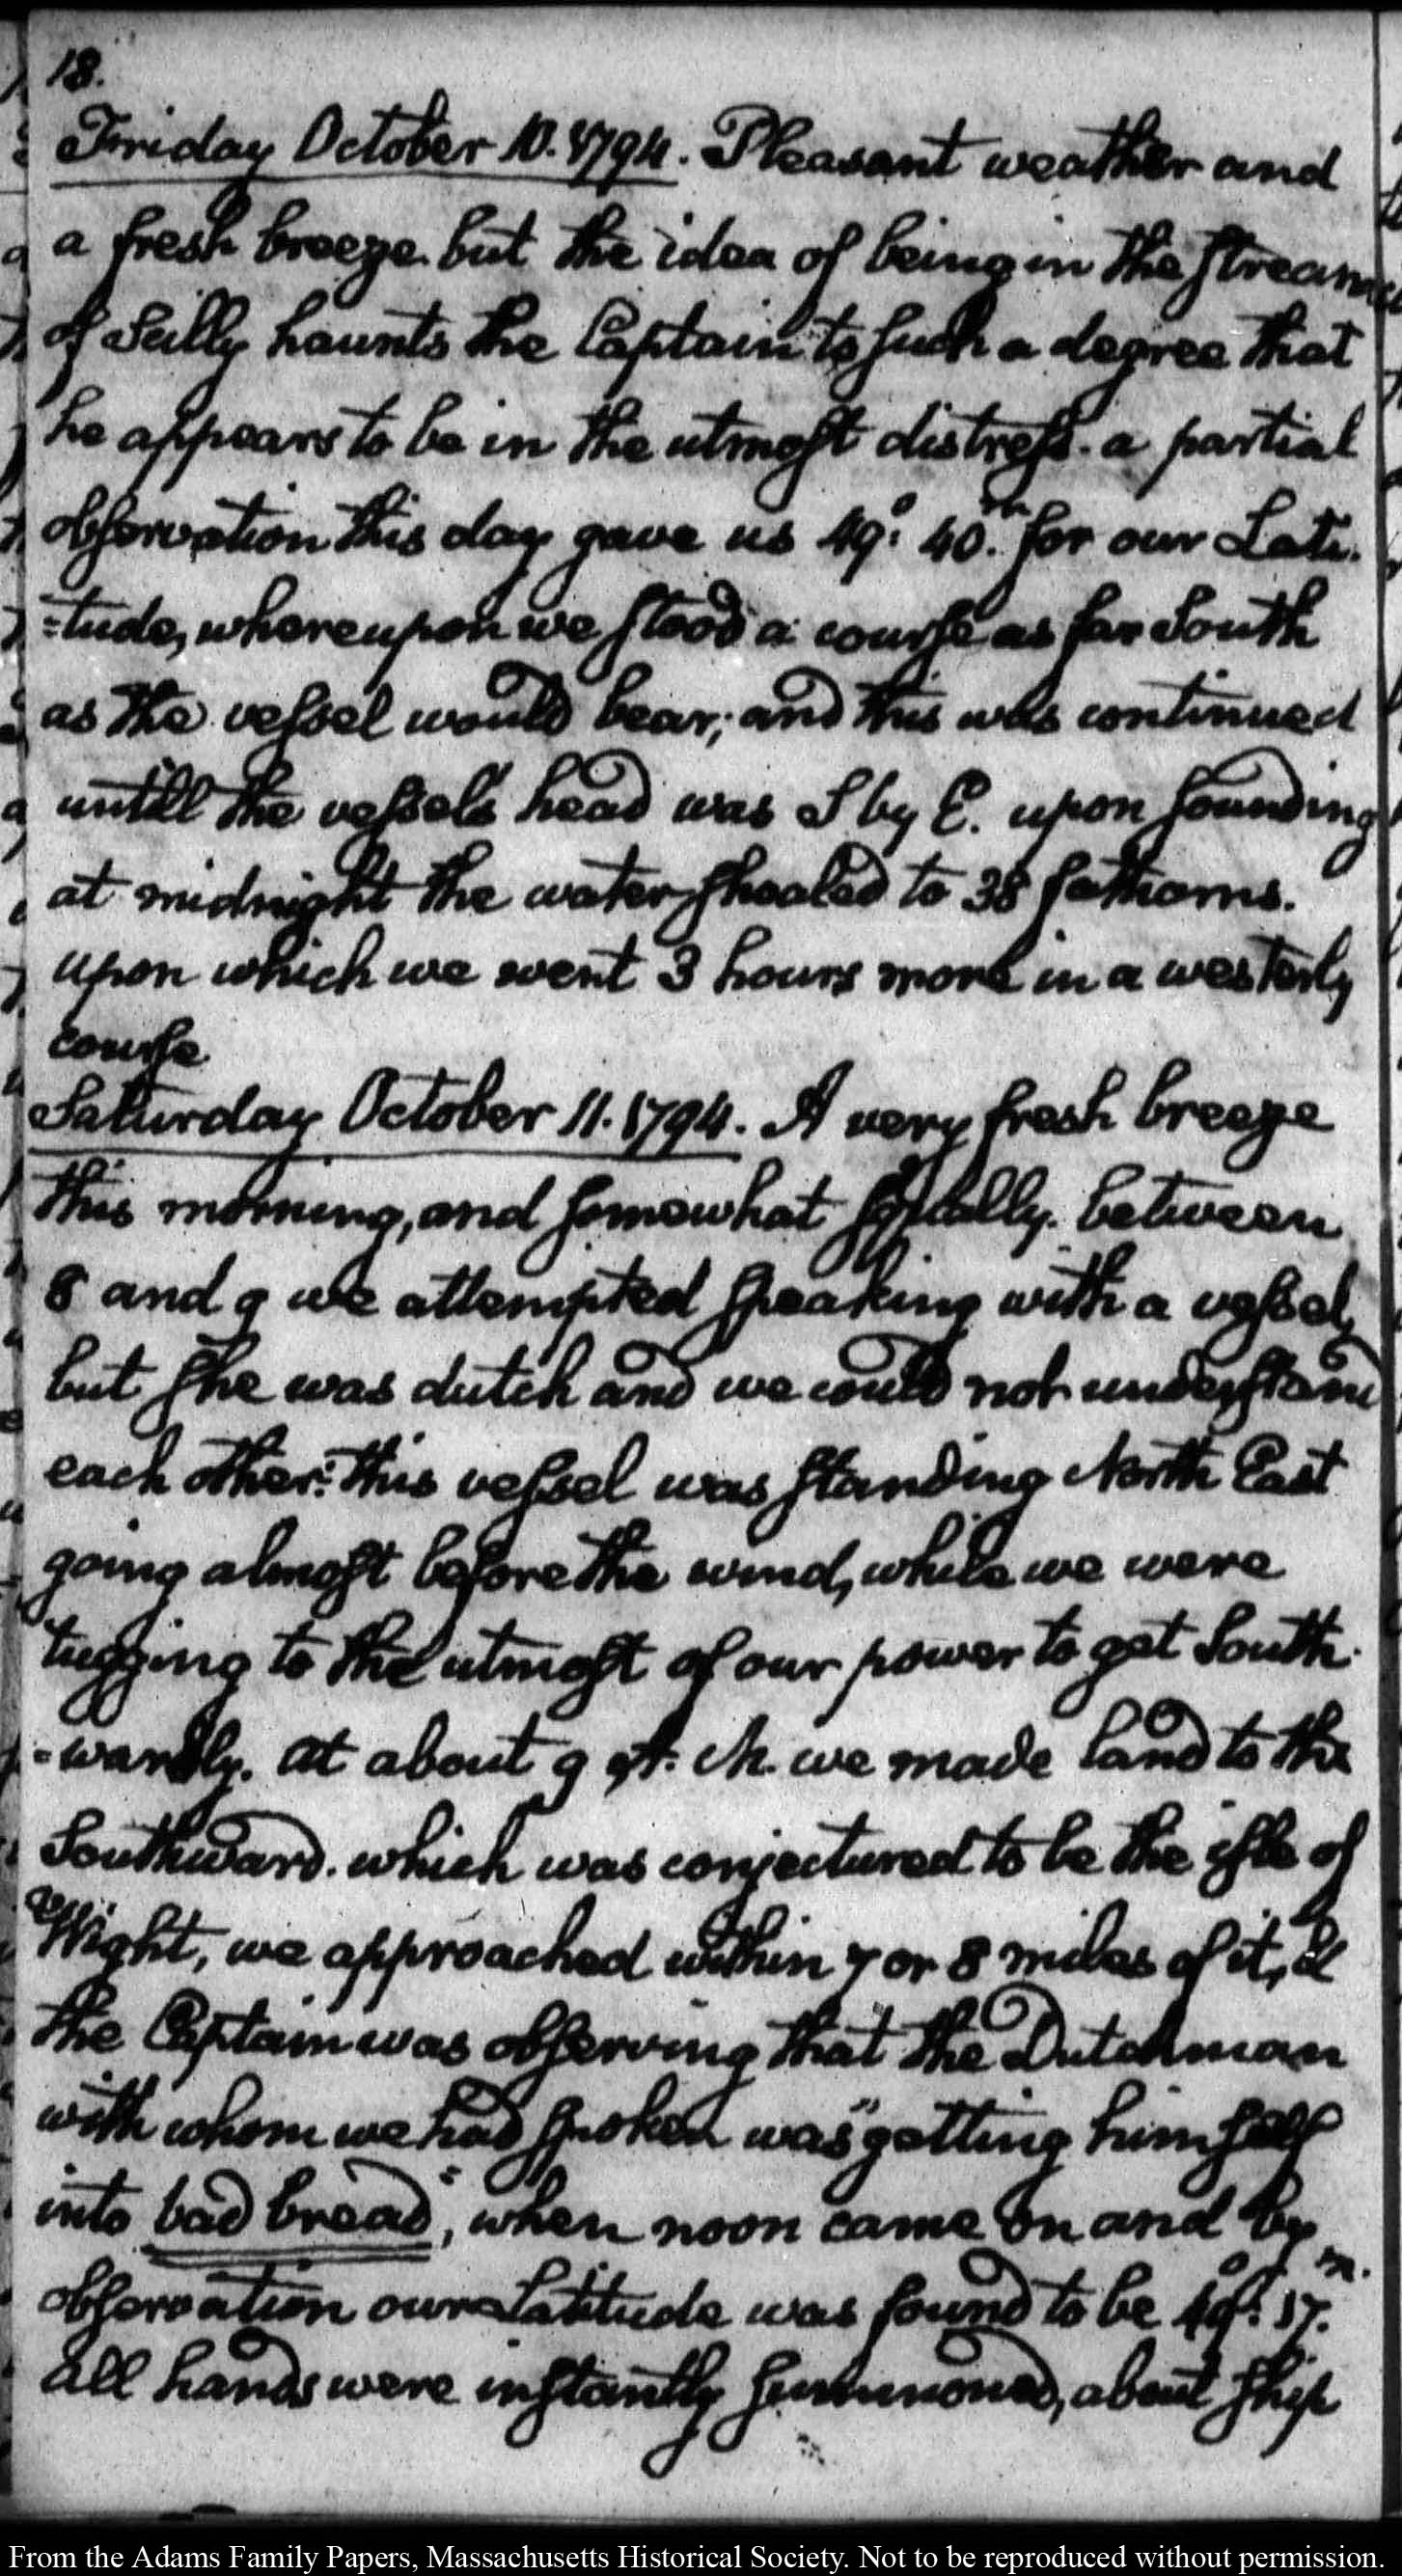 18.
Friday October 10. 1794. Pleasant weather and
a fresh breeze. but the idea of being in the stream
of Scilly haunts the Captain to such a degree that
he appears to be in the utmost distress. a partial
observation this day gave us 49°: 40.m for our Lati-
=tude, whereupon we stood a course as far South
as the vessel would bear; and this was continued
untill the vessels head was S by E. upon sounding
at midnight the water shoaled to 38 fathoms.
upon which we went 3 hours more in a westerly
course
Saturday October 11. 1794. A very fresh breeze
this morning, and somewhat squally. between
8 and 9 we attempted speaking with a vessel,
but she was dutch and we could not understand
each other: this vessel was standing North East
going almost before the wind, while we were
tugging to the utmost of our power to get South-
=wardly. at about 9 A. M. we made land to the
Southward. which was conjectured to be the isle of
Wight, we approached within 7 or 8 miles of it, &
the Captain was observing that the Dutchman
with whom we had spoken was "getting himself
into bad bread", when noon came on and by
observation our Latitude was found to be 49°: 57.m
all hands were instantly summoned, about ship
From the Adams Family Papers, Massachusetts Historical Society. Not to be reproduced without permission.